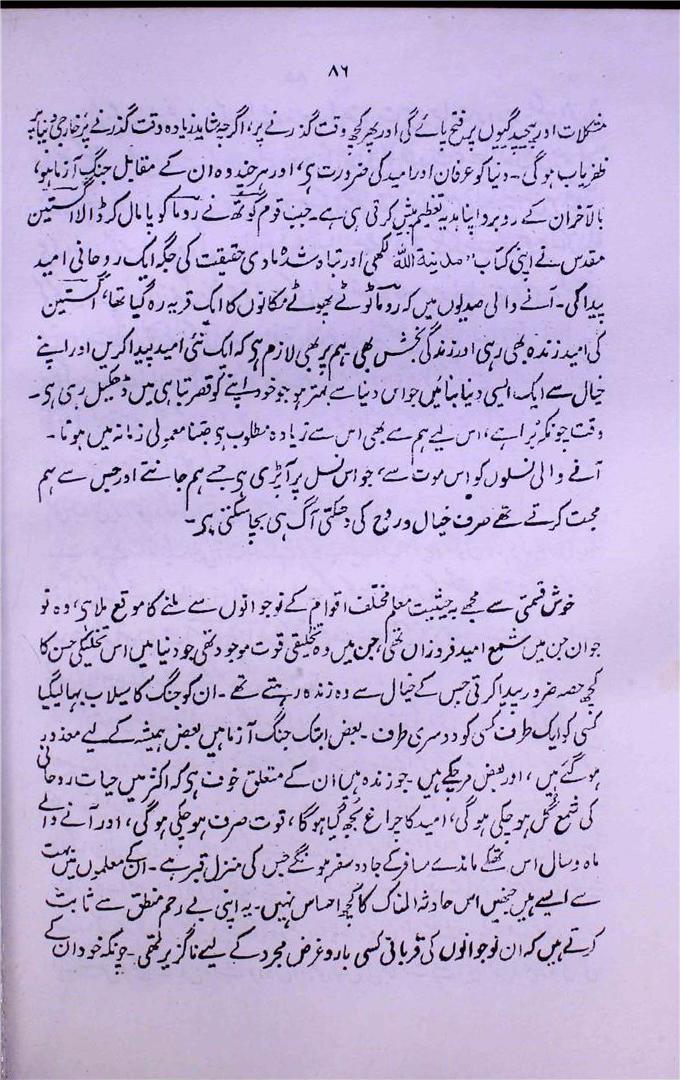 ۸۶
مشکلات اور پیچیدگیوں پر فتح پائے گی اور پھر کچھ وقت گذرنے پر، اگرچہ شاید زیادہ وقت گذرنے پر خارجی دنیا پر
ظفریاب ہوگی۔ دنیا کو عرفان اور امید کی ضرورت ہے، اور ہر چند وہ ان کے مقابل جنگ آزما ہو،
بالآخر ان کے روبرو اپنا ہدیہ تعظیم پیش کرتی ہی ہے۔ جب قوم گوتھ نے روما کو پامال کر ڈالا اگستین
مقدس نے اپنی کتاب "مدینۃ اللہ" لکھی اور تباہ شدہ مادی حقیقت کی جگہ ایک روحانی امید
پیدا کی۔ آنے والی صدیوں میں کہ روما ٹوٹے پھوٹے مکانوں کا ایک قریہ رہ گیا تھا، اگستین
کی امید زندہ بھی رہی اور زندگی بخش بھی ہم پر بھی لازم ہے کہ ایک نئی امید پیدا کریں اور اپنے
خیال سے ایک ایسی دنیا بنائیں جو اس دنیا سے بہتر ہو جو خود اپنے کو قصر تباہی میں ڈھکیل رہی ہے۔
وقت چونکہ بُرا ہے، اس لیے ہم سے بھی اس سے زیادہ مطلوب ہے جتنا معمولی زمانہ میں ہوتا۔
آنے والی نسلوں کو اس موت سے، جو اس نسل پر آپڑی ہے جسے ہم جانتے اور جس سے ہم
محبت کرتے تھے صرف خیال و روح کی دہکتی آگ ہی بچا سکتی ہے۔
خوش قسمتی سے مجھے بہ حیثیت معلم مختلف اقوام کے نوجوانوں سے ملنے کا موقع ملا ہے، وہ نو
جوان جن میں شمع امید فروزاں تھی، جن میں وہ تخلیقی قوت موجود تھی جو دنیا میں اس تخلیکی حسن کا
کچھ حصہ ضرور پیدا کرتی جس کے خیال سے وہ زندہ رہتے تھے۔ ان کو جنگ کا سیلاب بہا لیگیا
کسی کو ایک طرف کسی کو دوسری طرف۔ بعض ابتک جنگ آزما ہیں بعض ہمیشہ کے لیے معذور
ہوگئے ہیں، اور بعض مرچکے ہیں۔ جو زندہ ہیں ان کے متعلق خوف ہے کہ اکثر میں حیات روحانی
کی شمع گل ہوچکی ہوگی، امید کا چراغ بجھ گیا ہوگا، قوت صرف ہوچکی ہوگی، اور آنے والے
ماہ و سال اس تھکے ماندے مسافر کے جادۂ سفر ہونگے جس کی منزل قبر ہے۔ ان کے معلموں میں بہت
سے ایسے ہیں جنھیں اس حادثہ المناک کا کچھ احساس نہیں۔ یہ اپنی بے رحم منطق سے ثابت
کرتے ہیں کہ ان نوجوانوں کی قربانی کسی بارد غرض مجرد کے لیے ناگزیر تھی۔ چونکہ خود ان کے